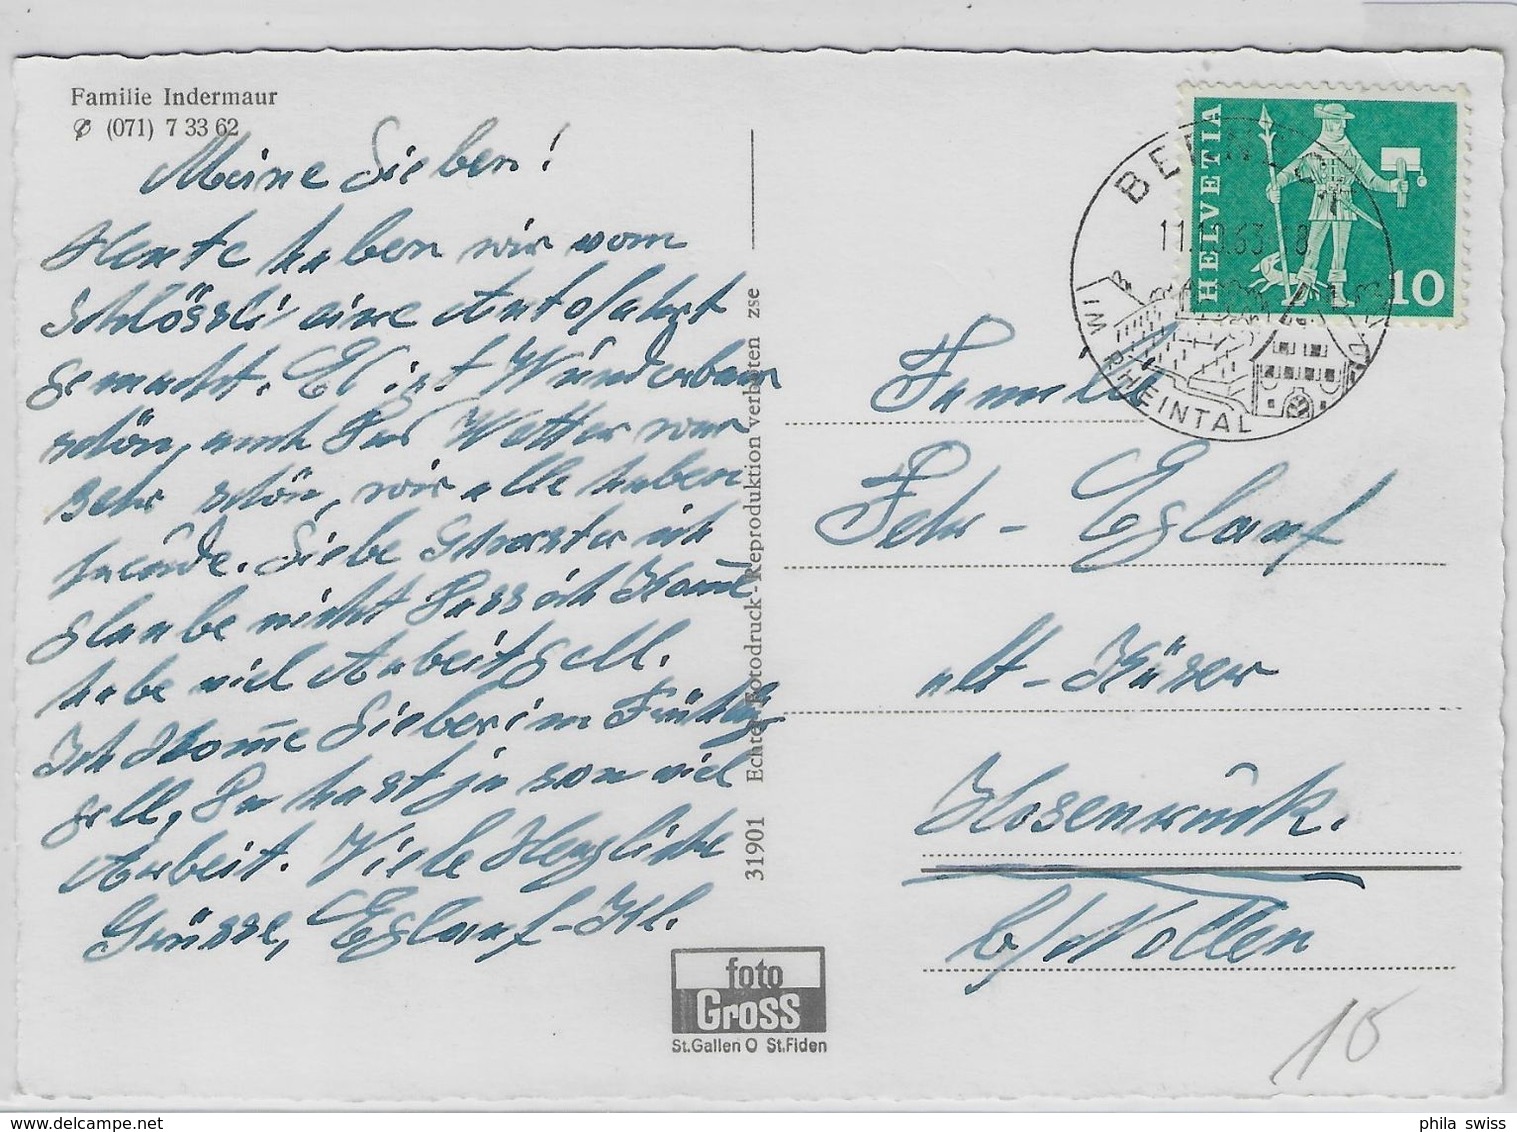 Familie Indermaur
✆ (071) 7 33 62
Meine Lieben!
Heute haben wir vom
Schlössli eine Autofahrt
gemacht. Es ist Wunderbaar
schön, auch das Wetter war
sehr schön, wir alle haben
freude. Liebe Schwester ich
glaube nicht dass ich Kome
habe viel Arbeit gell.
Ich Kome Lieber im Frühlig
gell, Du hast ja son viel
Arbeit. Viele Herzliche
Grüsse, Eglauf-Ihl.
31901 Echter Fotodruck-Reproduktion verboten zse
foto
Gross
St.Gallen O St.Fiden
HELVETIA
10
BERNECK
11.10.63 - 8
IM RHEINTAL
Familie
Fehr-Eglauf
alt-Käser
Hosenruck.
b/Nollen
10
phila swiss